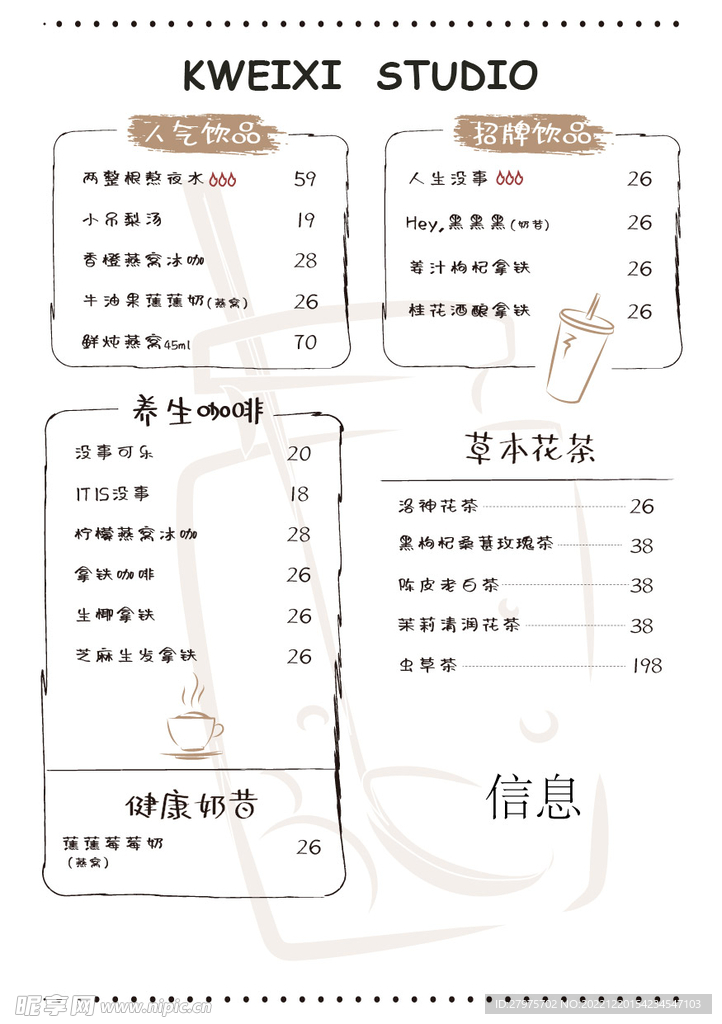 KWEIXI STUDIO
人气饮品
两整根熬夜水 59
小吊梨汤 19
香橙燕窝冰咖 28
牛油果蕉蕉奶(燕窝) 26
鲜炖燕窝45ml 70
招牌饮品
人生没事 26
Hey,黑黑黑(奶昔) 26
姜汁枸杞拿铁 26
桂花酒酿拿铁 26
养生咖啡
没事可乐 20
IT IS没事 18
柠檬燕窝冰咖 28
拿铁咖啡 26
生椰拿铁 26
芝麻生发拿铁 26
健康奶昔
蕉蕉莓莓奶 26
(燕窝)
草本花茶
洛神花茶 26
黑枸杞桑葚玫瑰茶 38
陈皮老白茶 38
茉莉清润花茶 38
虫草茶 198
信息
昵享网 www.nipic.cn
ID:27975702 NO:20221220154234547103